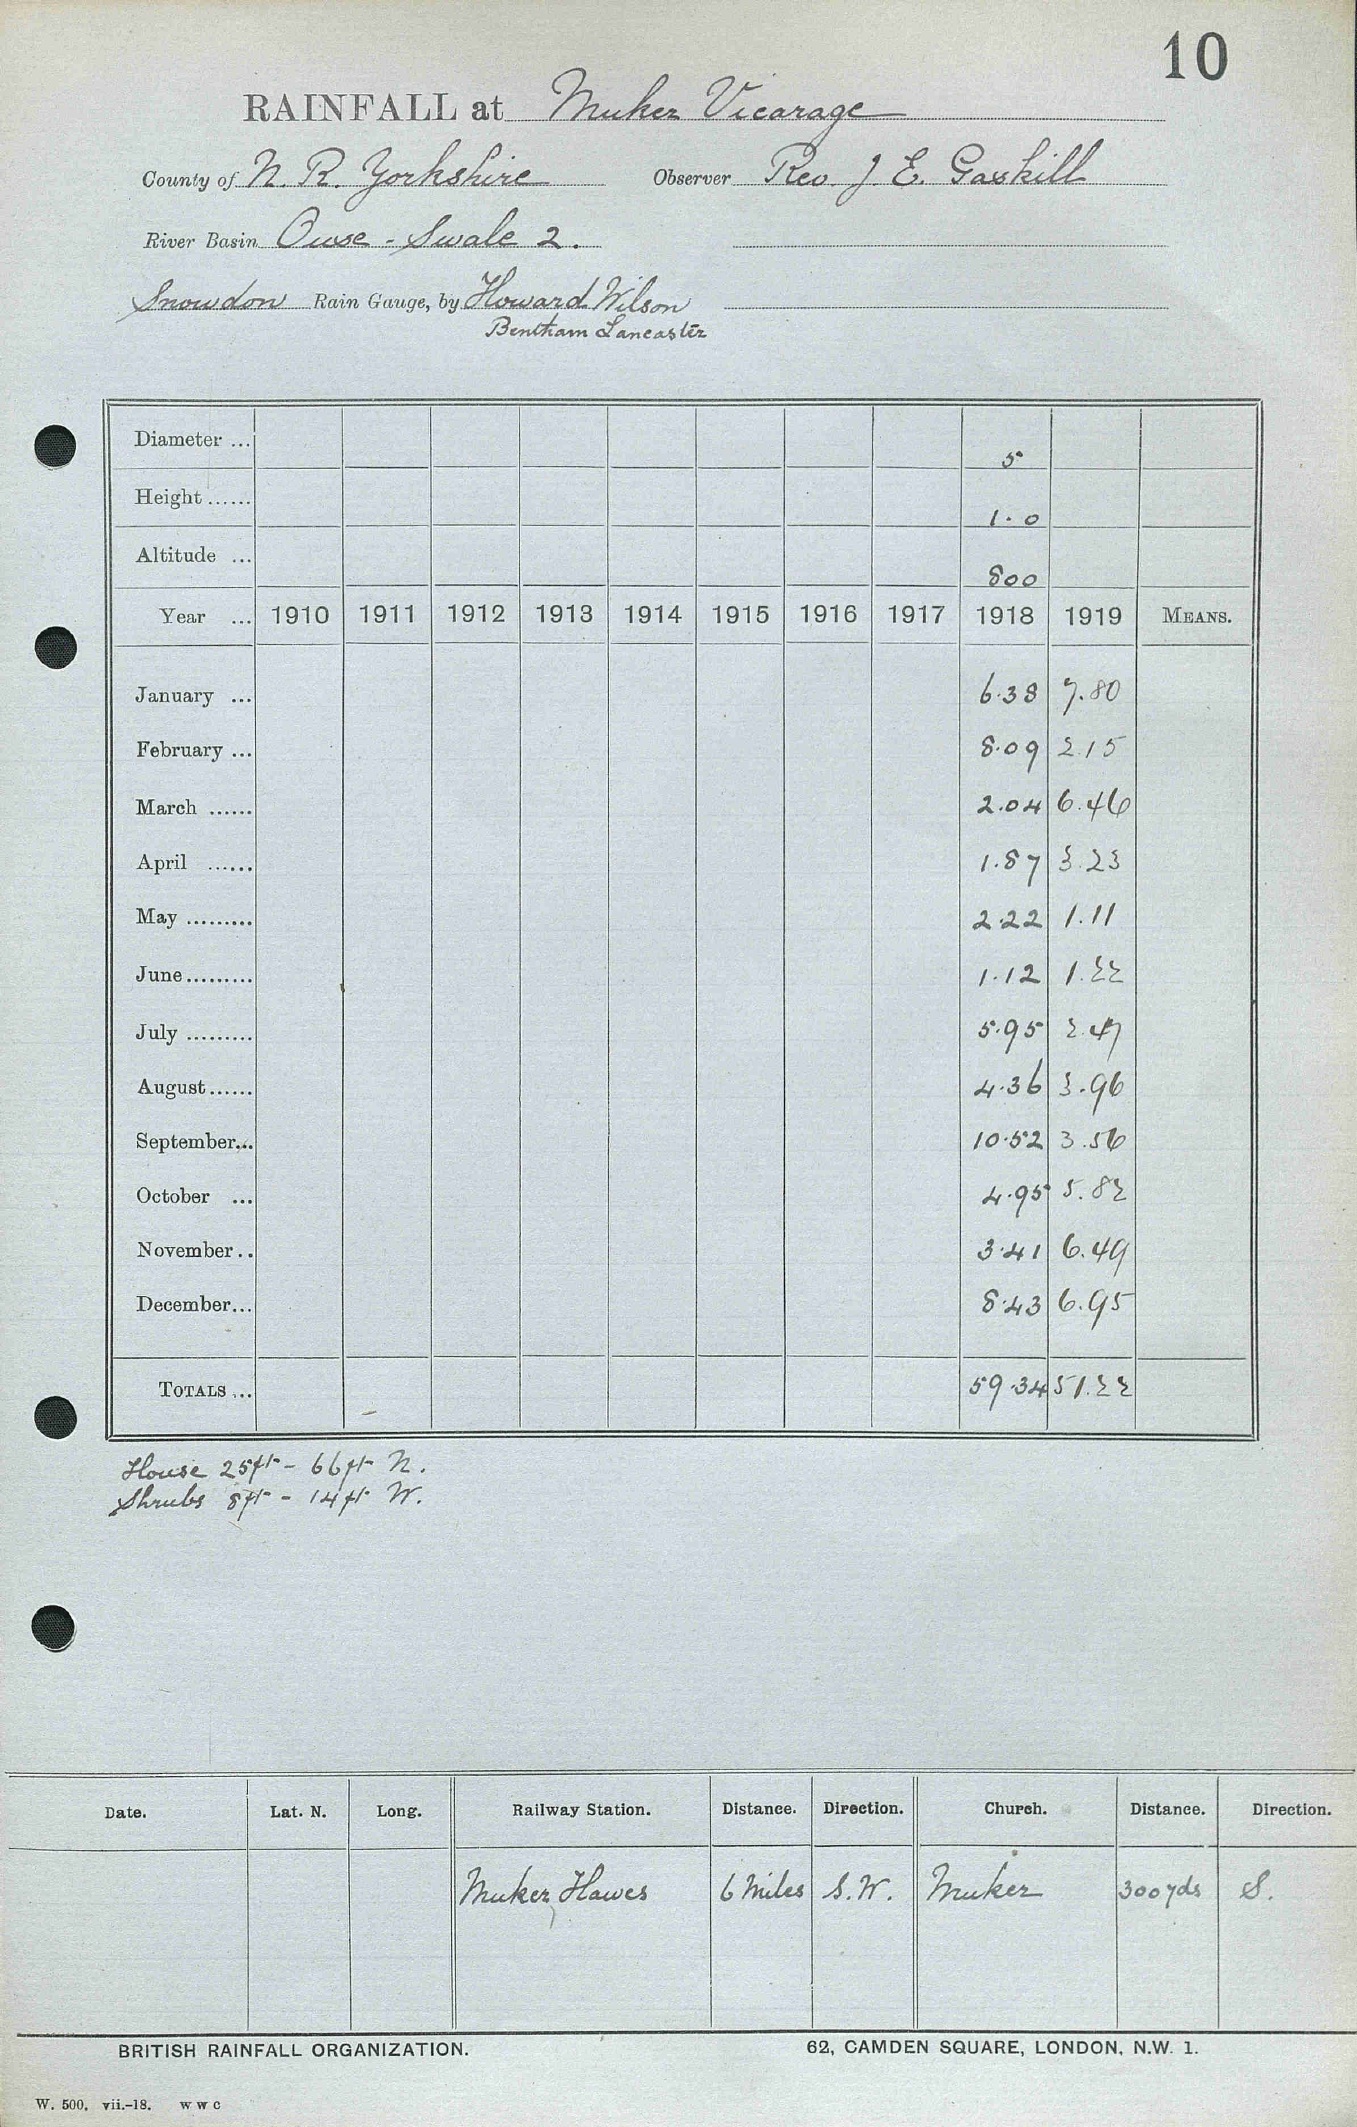 10
RAINFALL at Muker Vicarage
County of N. R. Yorkshire Observer Rev. J. E. Gaskill
River Basin Ouse - Swale 2.
Snowdon Rain Gauge, by Howard Wilson
Bentham Lancaster
Diameter ... 5
Height ...... 1.0
Altitude ... 800
Year ... 1910 1911 1912 1913 1914 1915 1916 1917 1918 1919 MEANS.
January ... 6.38 7.80
February ... 8.09 2.15
March ...... 2.04 6.46
April ...... 1.87 3.23
May ......... 2.22 1.11
June ......... 1.12 1.22
July ......... 5.95 2.47
August ...... 4.36 3.96
September... 10.52 3.56
October ... 4.95 5.82
November .. 3.41 6.49
December... 8.43 6.95
TOTALS ... 59.34 51.22
House 25ft - 66ft N.
Shrubs 8ft - 14ft W.
Date. Lat. N. Long. Railway Station. Distance. Direction. Church. Distance. Direction.
Muker, Hawes 6 Miles S.W. Muker 300yds S.
BRITISH RAINFALL ORGANIZATION. 62, CAMDEN SQUARE, LONDON, N.W. 1.
W. 500. vii.-18. w w c